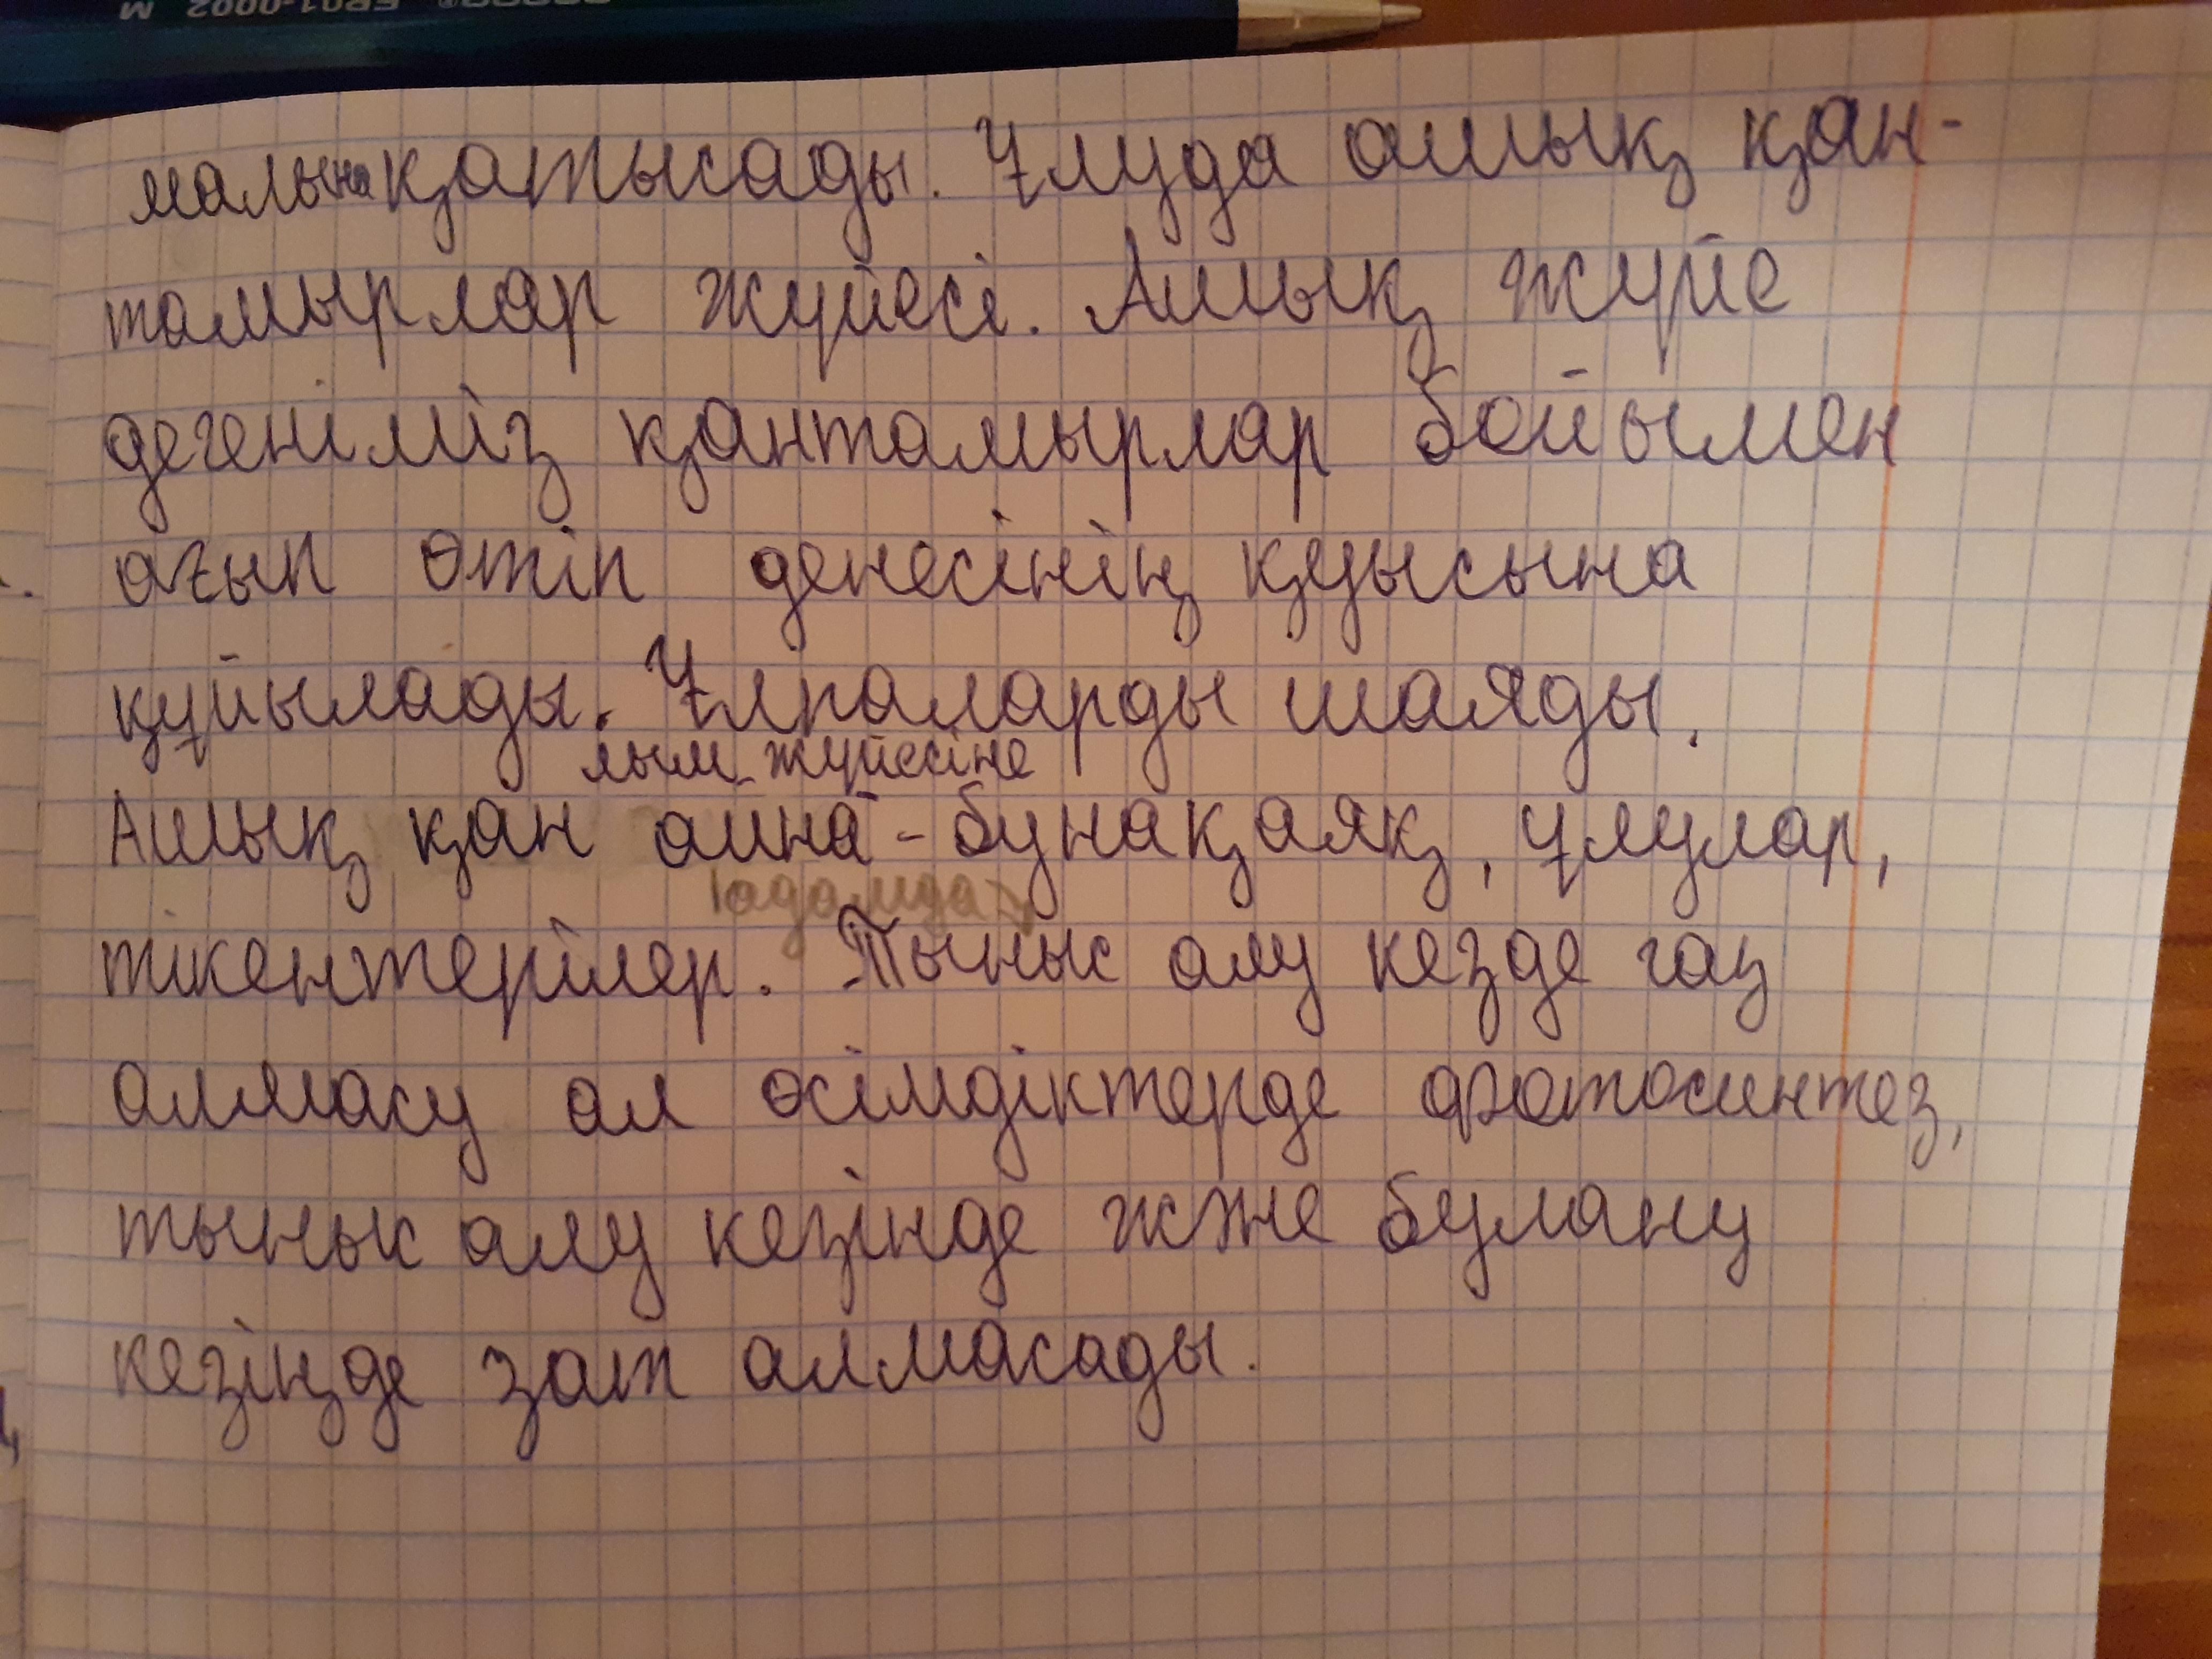 M 2000-1093
малынақатысады. Ұлуда ашық қан-
тамырлар жүйесі. Ашық жүйе
дегеніміз қантамырлар бойымен
ағып өтіп денесінің қуысына
құйылады. Ұлпаларды шаяды.
лым жүйесіне
Ашық қан айна - бунақаяқ, ұлулар,
адамда
тікентерілер. Тыныс алу кезде газ
алмасу ал өсімдіктерде фотосинтез,
тыныс алу кезінде жже булану
кезіңде зат алмасады.